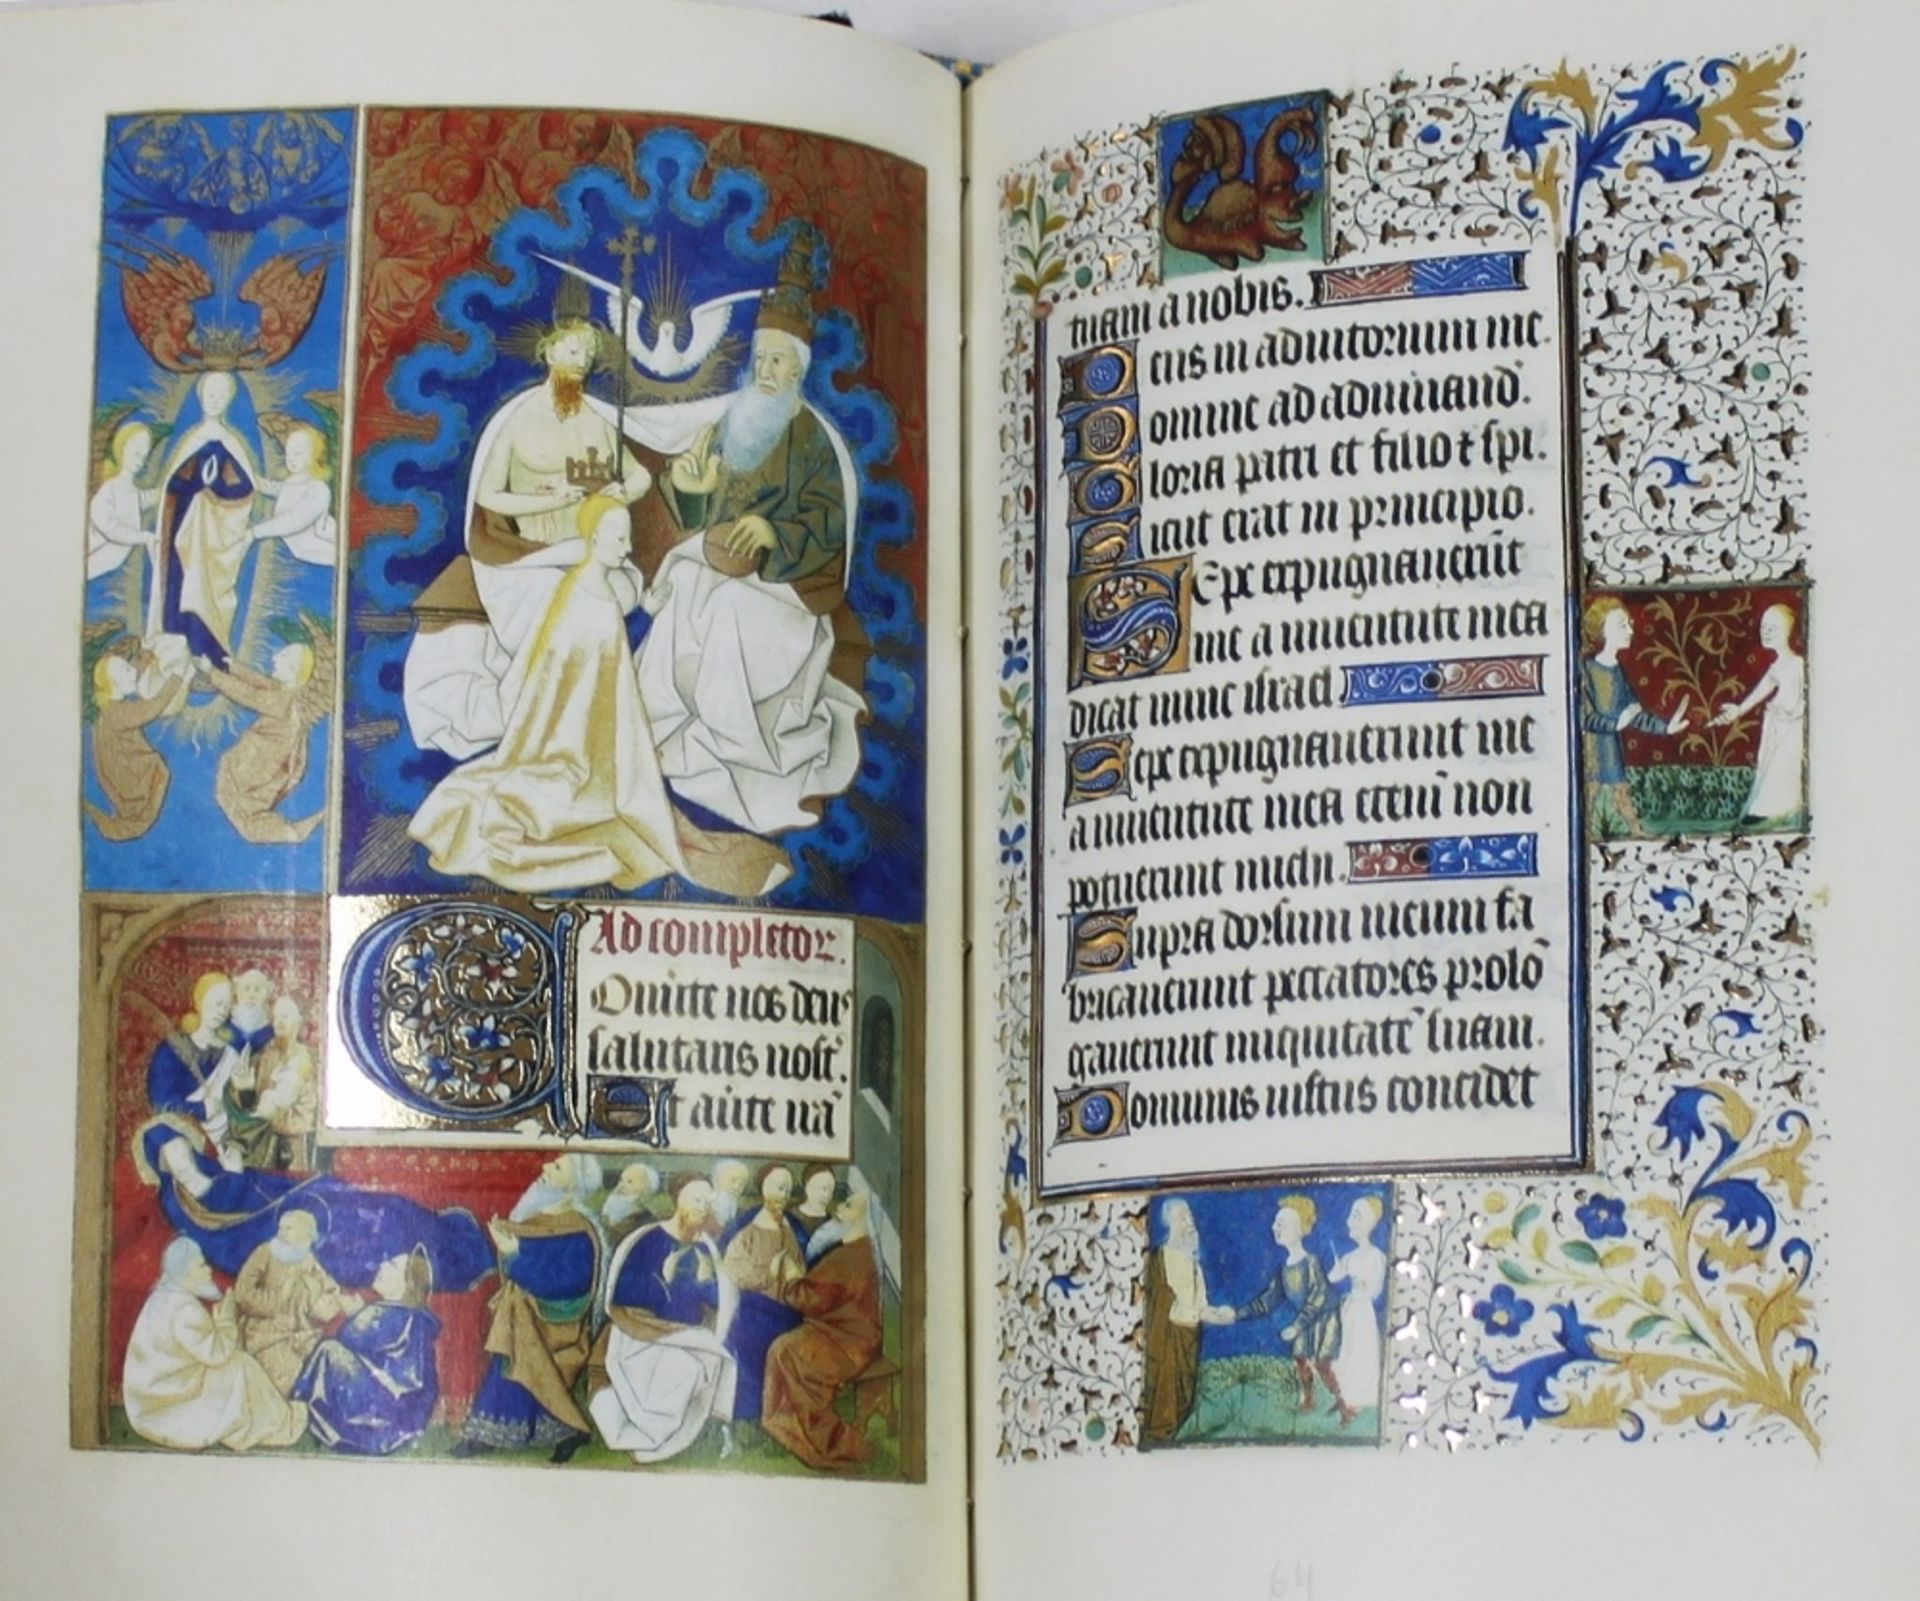 Ad completor.
Onũte nos deus
salutaris nost̃.
Et aũte nã
tuam a nobis.
Deus in adiutorium me.
Domine ad adiuuand̃.
Gloria patri et filio & spi.
Sicut erat in principio.
SEpe expugnauerũt
me a iuuentute mea
dicat nunc israel
Sepe expugnauerunt me
a iuuentute mea etenĩ non
potuerunt michi.
Supra dorsum meum fa
bricauerunt peccatores prolõ
gauerunt iniquitatẽ suam.
Dominus iustus concidet
64